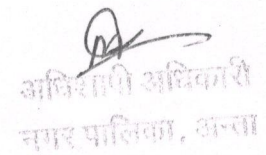 अधिशाषी अधिकारी
नगर पालिका, अन्ता